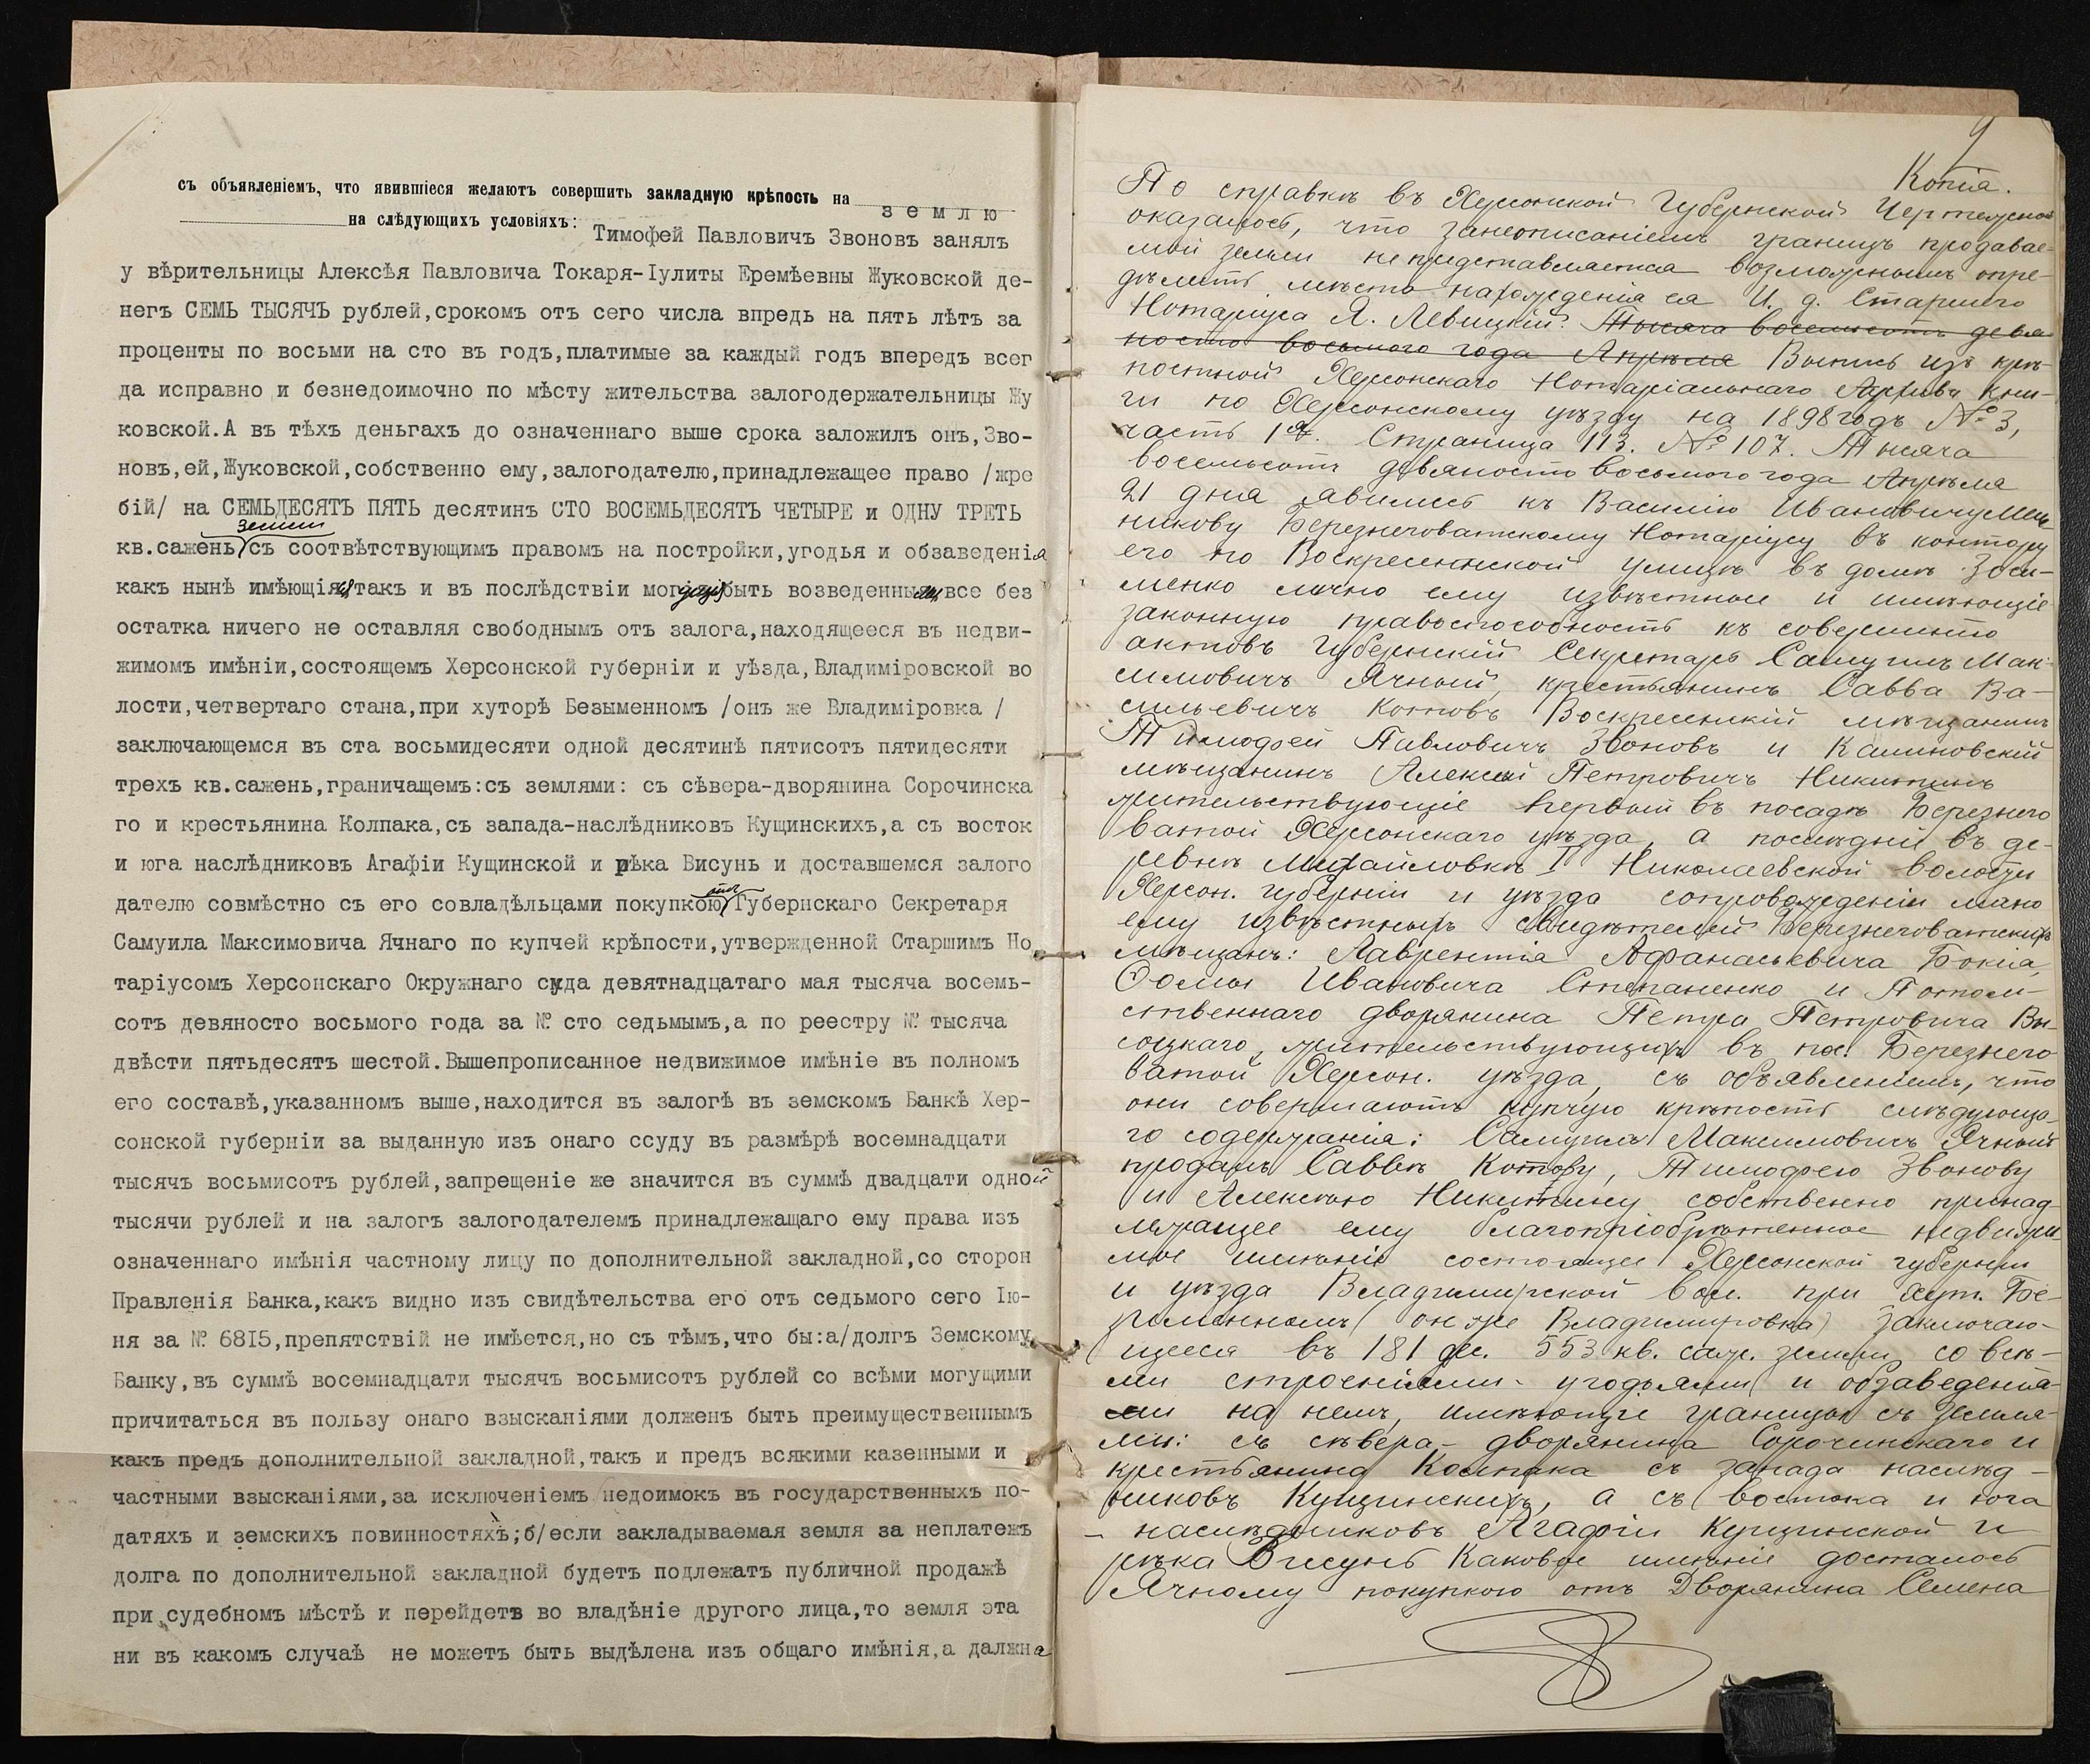 съ объявленіемъ, что явившіеся желаютъ совершить закладную крѣпость на землю
на слѣдующихъ условіяхъ: Тимофей Павловичъ Звоновъ занялъ
у вѣрительницы Алексѣя Павловича Токаря-Іулиты Еремѣевны Жуковской де-
негъ СЕМЬ ТЫСЯЧЪ рублей,срокомъ отъ сего числа впредь на пять лѣтъ за
проценты по восьми на сто въ годъ,платимые за каждый годъ впередъ всег
да исправно и безнедоимочно по мѣсту жительства залогодержательницы Жу
ковской.А въ тѣхъ деньгахъ до означеннаго выше срока заложилъ онъ,Зво-
новъ,ей,Жуковской,собственно ему,залогодателю,принадлежащее право /жре
бій/ на СЕМЬДЕСЯТЪ ПЯТЬ десятинъ СТО ВОСЕМЬДЕСЯТЪ ЧЕТЫРЕ и ОДНУ ТРЕТЬ
земли
кв.сажень съ соотвѣтствующимъ правомъ на постройки,угодья и обзаведенія
какъ нынѣ имѣющіяся,такъ и въ послѣдствіи могущія быть возведенными,все без
остатка ничего не оставляя свободнымъ отъ залога,находящееся въ недви-
жимомъ имѣніи,состоящемъ Херсонской губерніи и уѣзда,Владиміровской во
лости,четвертаго стана,при хуторѣ Безыменномъ /онъ же Владиміровка /
заключающемся въ ста восьмидесяти одной десятинѣ пятисотъ пятидесяти
трехъ кв.сажень,граничащемъ:съ землями: съ сѣвера-дворянина Сорочинска
го и крестьянина Колпака,съ запада-наслѣдниковъ Кущинскихъ,а съ восток
и юга наслѣдниковъ Агафіи Кущинской и рѣка Висунь и доставшемся залого
дателю совмѣстно съ его совладѣльцами покупкою отъ Губернскаго Секретаря
Самуила Максимовича Ячнаго по купчей крѣпости,утвержденной Старшимъ Но
таріусомъ Херсонскаго Окружнаго суда девятнадцатаго мая тысяча восемь-
сотъ девяносто восьмого года за № сто седьмымъ,а по реестру № тысяча
двѣсти пятьдесятъ шестой.Вышепрописанное недвижимое имѣніе въ полномъ
его составѣ,указанномъ выше,находится въ залогѣ въ земскомъ Банкѣ Хер-
сонской губерніи за выданную изъ онаго ссуду въ размѣрѣ восемнадцати
тысячъ восьмисотъ рублей,запрещеніе же значится въ суммѣ двадцати одной
тысячи рублей и на залогъ залогодателемъ принадлежащаго ему права изъ
означеннаго имѣнія частному лицу по дополнительной закладной,со сторон
Правленія Банка,какъ видно изъ свидѣтельства его отъ седьмого сего Ію-
ня за № 6815,препятствій не имѣется,но съ тѣмъ,что бы:а/долгъ Земскому
Банку,въ суммѣ восемнадцати тысячъ восьмисотъ рублей со всѣми могущими
причитаться въ пользу онаго взысканіями долженъ быть преимущественнымъ
какъ предъ дополнительной закладной,такъ и предъ всякими казенными и
частными взысканіями,за исключеніемъ недоимокъ въ государственныхъ по-
датяхъ и земскихъ повинностяхъ;б/если закладываемая земля за неплатежъ
долга по дополнительной закладной будетъ подлежать публичной продажѣ
при судебномъ мѣстѣ и перейдетъ во владѣніе другого лица,то земля эта
ни въ какомъ случаѣ не можетъ быть выдѣлена изъ общаго имѣнія,а далжна
9
Копія.
По справкѣ въ Херсонской Губернской Чертежной
оказалось, что занеописаніемъ границъ продавае-
мой земли непредставляется возможнымъ опре-
дѣлить мѣсто нахожденія ея И. д. Старшего
Нотаріуса Я. Левицкій. Тысяча восемьсотъ девя
носто восьмого года Апрѣля Выпись изъ крѣ-
постной Херсонскаго Нотаріальнаго Архива кни-
ги по Херсонскому уѣзду на 1898 годъ № 3,
часть 1я. Страница 113. № 107. Тысяча
восемьсотъ девяносто восьмого года Апрѣля
21 дня явились къ Василію Ивановичу Мель
никову Березнеговатскому Нотаріусу въ контору
его по Воскресенской улицѣ въ домѣ Зоси-
менко лично ему извѣстные и имѣющіе
законную правоспособность къ совершенію
актовъ Губернскій Секретарь Самуилъ Мак-
симовичъ Ячный, крестьянинъ Савва Ва-
сильевичъ Котовъ Воскресенскій мѣщанинъ
Тимофей Павловичъ Звоновъ и Калиновскій
мѣщанинъ Алексѣй Петровичъ Никитинъ
жительствующіе первый въ посадѣ Березнего
ватой Херсонскаго уѣзда, а послѣдній въ де-
ревнѣ Михайловкѣ I Николаевской волости
Херсон. губерніи и уѣзда сопровожденіи мано
ему извѣстныхъ свидѣтелей Березнеговатскихъ
мѣщанъ: Лаврентія Афанасьевича Бокія,
Фомы Ивановича Степаненко и Потом-
ственнаго дворянина Петра Петровича Вы-
соцкаго, жительствующихъ въ пос. Березнего
ватой Херсон. уѣзда, съ объявленіемъ, что
они совершаютъ купчую крѣпость слѣдующа-
го содержанія: Самуилъ Максимовичъ Ячный
продалъ Саввѣ Котову, Тимофею Звонову
и Алексѣю Никитину собственно принад-
лежащее ему благопріобрѣтенное недвижи
мое имѣніе состоящее Херсонской губерніи
и уѣзда Владимирской вол. при хут. Бе-
зыменномъ (онже Владимировка) заключаю-
щееся въ 181 де. 553 кв. саж. земли со всѣ-
ми строеніями угодьями и обзаведенія-
ми на немъ, имѣющіе границы съ земля-
ми: съ сѣвера - дворянина Сорочинскаго и
крестьянина Колпака съ запада наслѣд-
никовъ Кущинскихъ, а съ востока и юга
- наслѣдниковъ Агафіи Кущинской и
рѣка Висунь Каковое имѣніе досталось
Ячному покупкою отъ Дворянина Семена